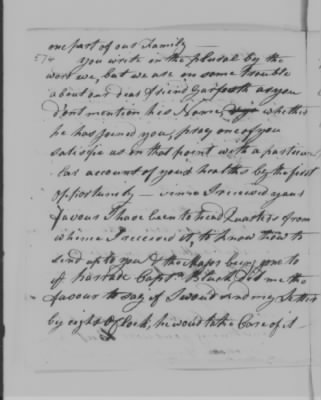 one part of our Family
574 You write in the plural by the
word we, but we are in some trouble
about our dear Friend Gasforth as you
dont mention his Name, whether
he has joined you, pray one of you
satisfie us in that point with a particu
lar account of your healths by the first
opportunity — since I received your
favour I have been to head Quarters from
whence I received it, to know how to
send up to you & the Major being gone to
ye parrade Capt. Black did me the
favour to say if I woud send my Letter
by eight O Clock, he woud take Care of it